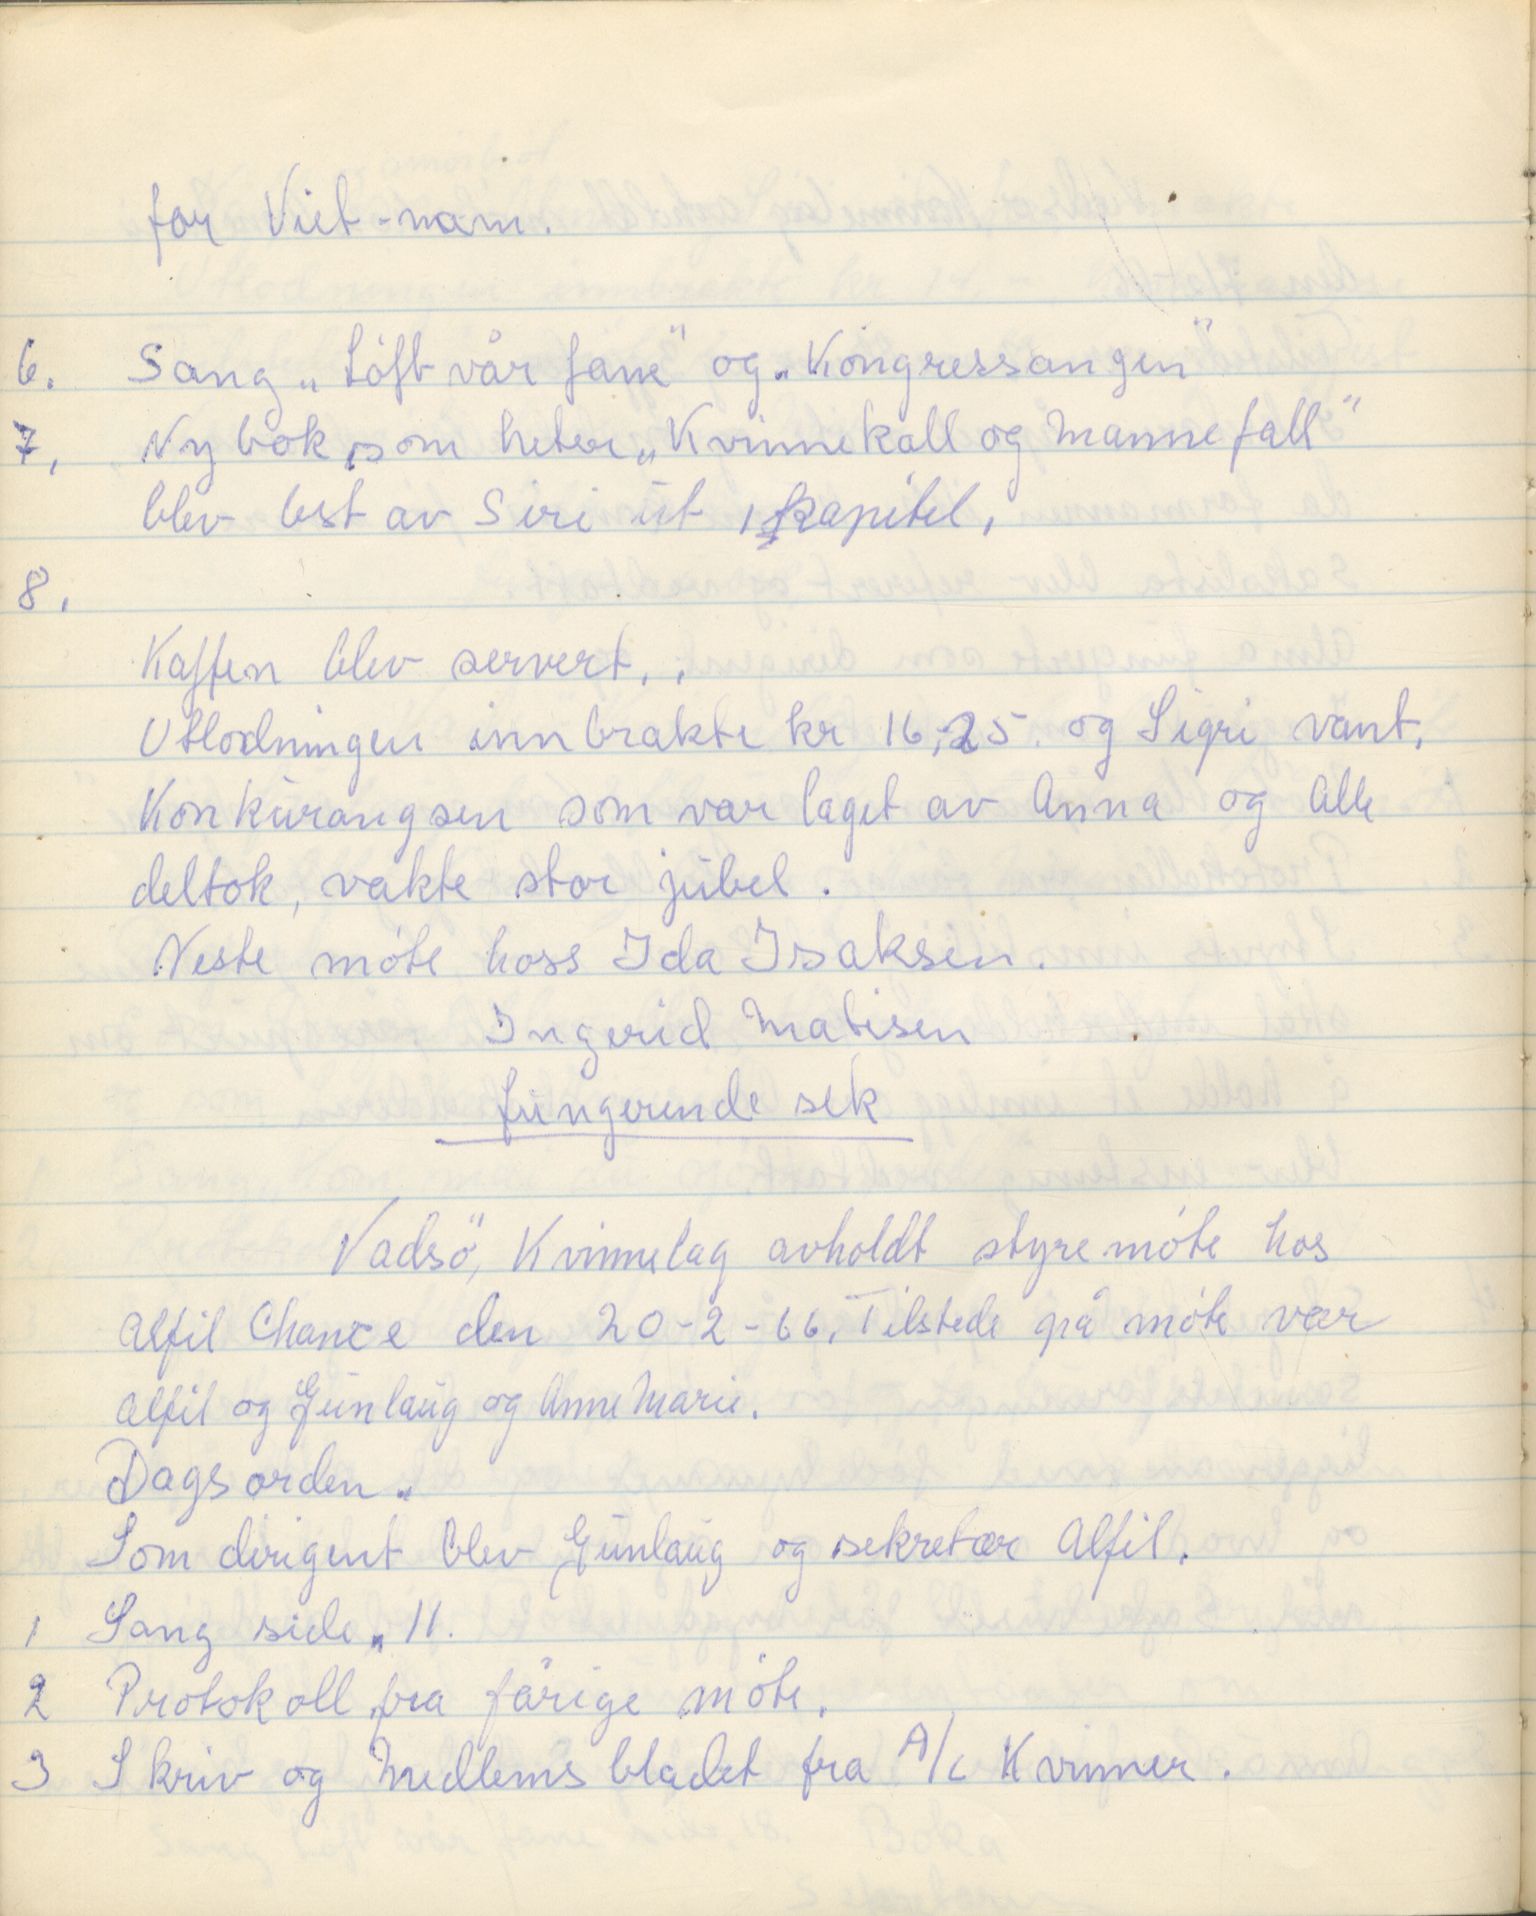 for Viet-nam.
6. Sang „Löft vår fane" og „Kongressangen"
7. Ny bok som heter „Kvinnekall og Mannefall"
blev lest av Siri ut 1 kapitel.
8.
Kaffen blev servert..
Utlodningen innbrakte kr 16,25. og Sigri vant.
Konkurangsen som var laget av Anna og Alle
deltok, vakte stor jubel.
Neste möte hoss Ida Isaksen.
Ingerid Matisen
fungerende sek
Vadsö, Kvinnelag avholdt styremöte hos
Alfil Chance den 20-2-66. Tilstede på möte var
Alfil og Gunlaug og Anne Marie.
Dagsorden.
Som dirigent blev Gunlaug og sekretær Alfil.
1 Sang side „ 11.
2 Protokoll fra färige möte.
3 Skriv og Medlemsbladet fra A/L Kvinner.